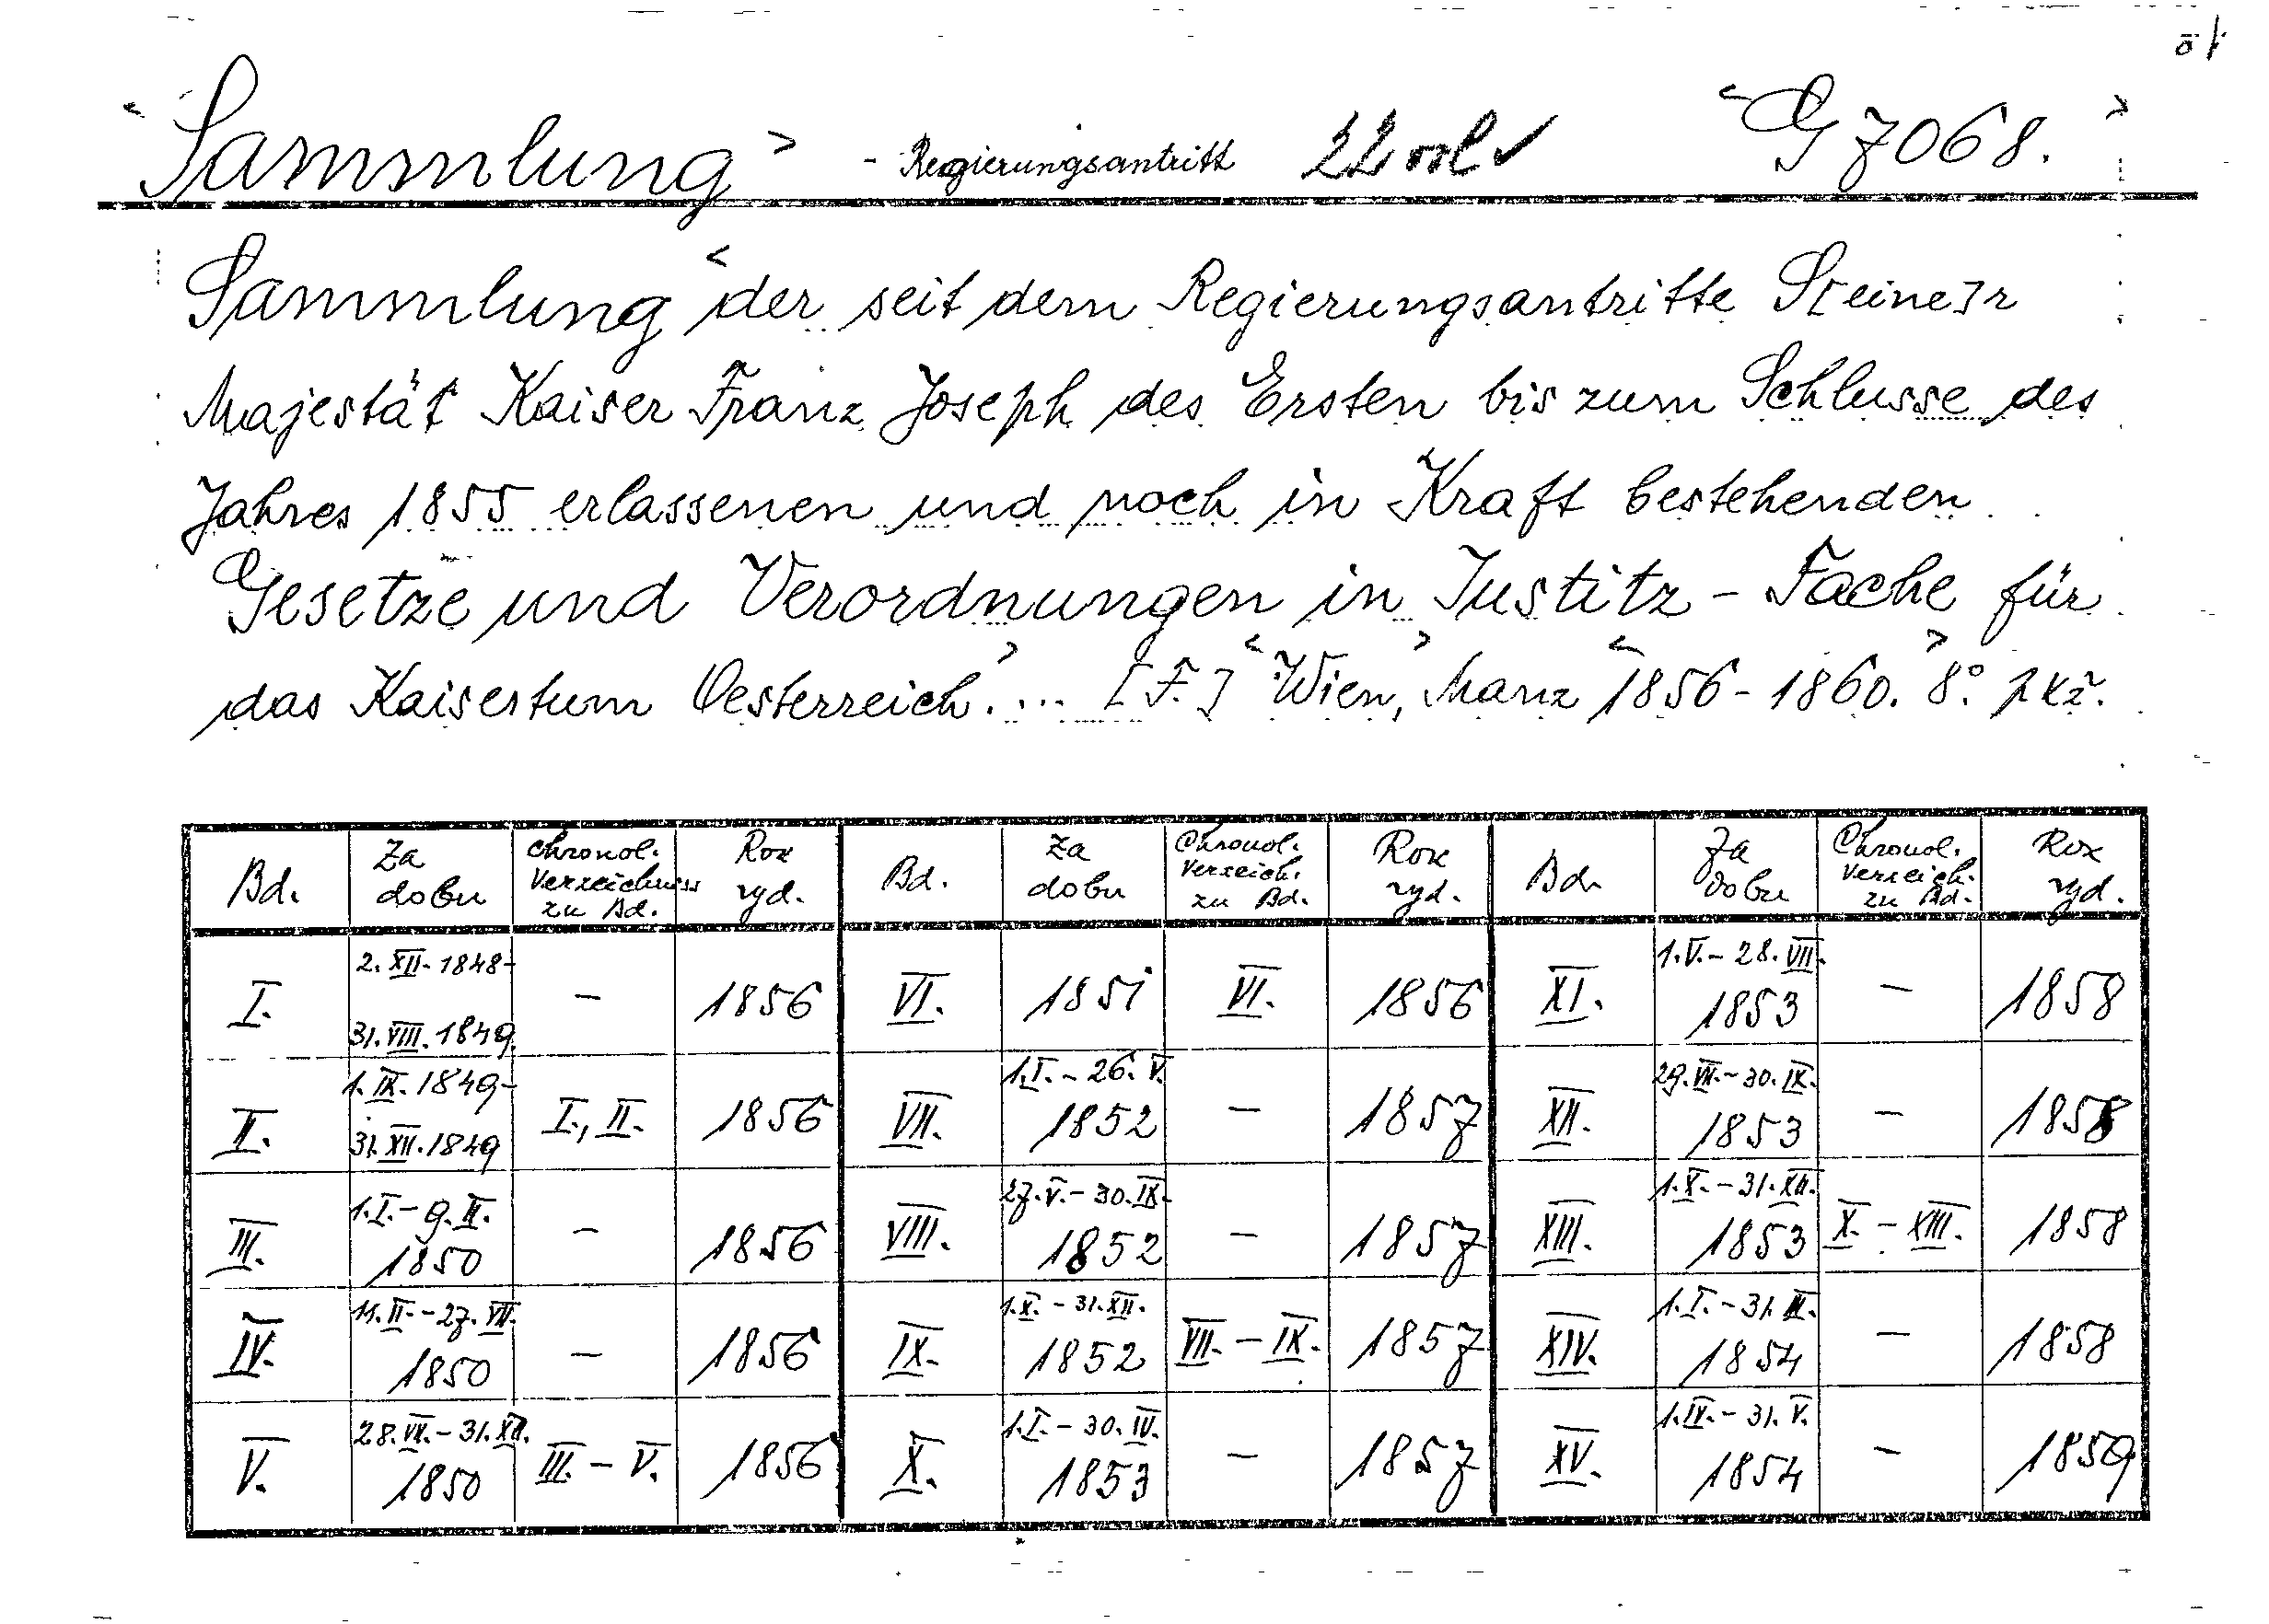 Sammlung - Regierungsantritt 22 vol ✓ G 7068.
Sammlung der seit dem Regierungsantritte S[eine]r
Majestät Kaiser Franz Joseph des Ersten bis zum Schlusse des
Jahres 1855 erlassenen und noch in Kraft bestehenden
Gesetze und Verordnungen in Justitz - Fache für
das Kaisertum Oesterreich. ... [F.] Wien, Manz 1856 - 1860. 8°.
Bd. Za dobu Chronol. Verzeichniss zu Bd. Rok vyd. Bd. Za dobu Chronol. Verzeich. zu Bd. Rok vyd. Bd. Za dobu Chronol. Verzeich. zu Bd. Rok vyd.
I. 2. XII. 1848 - 31. VIII. 1849. - 1856 VI. 1851 VI. 1856 XI. 1. V. - 28. VII. 1853 - 1858
II. 1. IX. 1849 - 31. XII. 1849 I., II. 1856 VII. 1. I. - 26. V. 1852 - 1857 XII. 29. VII. - 30. IX. 1853 - 1858
III. 1. I. - 9. II. 1850 - 1856 VIII. 27. V. - 30. IX. 1852 - 1857 XIII. 1. X. - 31. XII. 1853 X. - XIII. 1858
IV. 11. II. - 27. VII. 1850 - 1856 IX. 1. X. - 31. XII. 1852 VII. - IX. 1857 XIV. 1. I. - 31. III. 1854 - 1858
V. 28. VII. - 31. XII. 1850 III. - V. 1856 X. 1. I. - 30. IV. 1853 - 1857 XV. 1. IV. - 31. V. 1854 - 1859